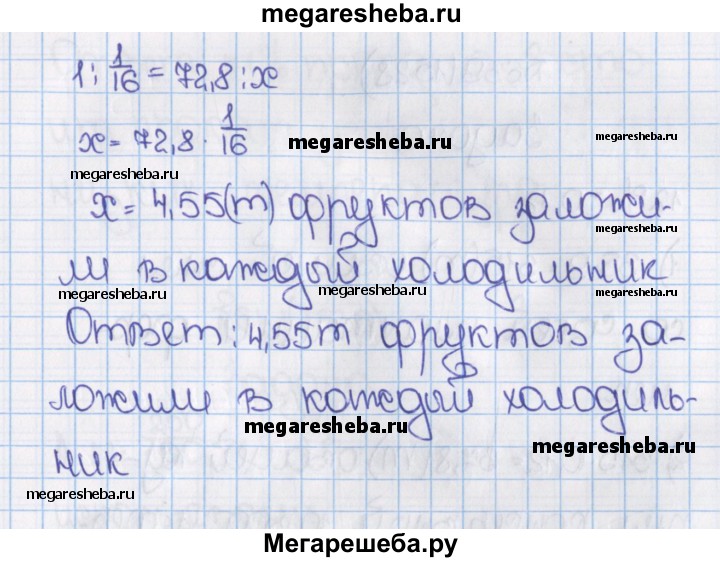 megaresheba.ru
1 : 1/16 = 72,8 : x
x = 72,8 · 1/16
megaresheba.ru
megaresheba.ru
megaresheba.ru
x = 4,55(т) фруктов заложи-
megaresheba.ru
ли в каждый холодильник
megaresheba.ru
megaresheba.ru
megaresheba.ru
Ответ: 4,55т фруктов за-
ложили в каждый холодиль-
megaresheba.ru
megaresheba.ru
ник
megaresheba.ru
Мегарешеба.ру